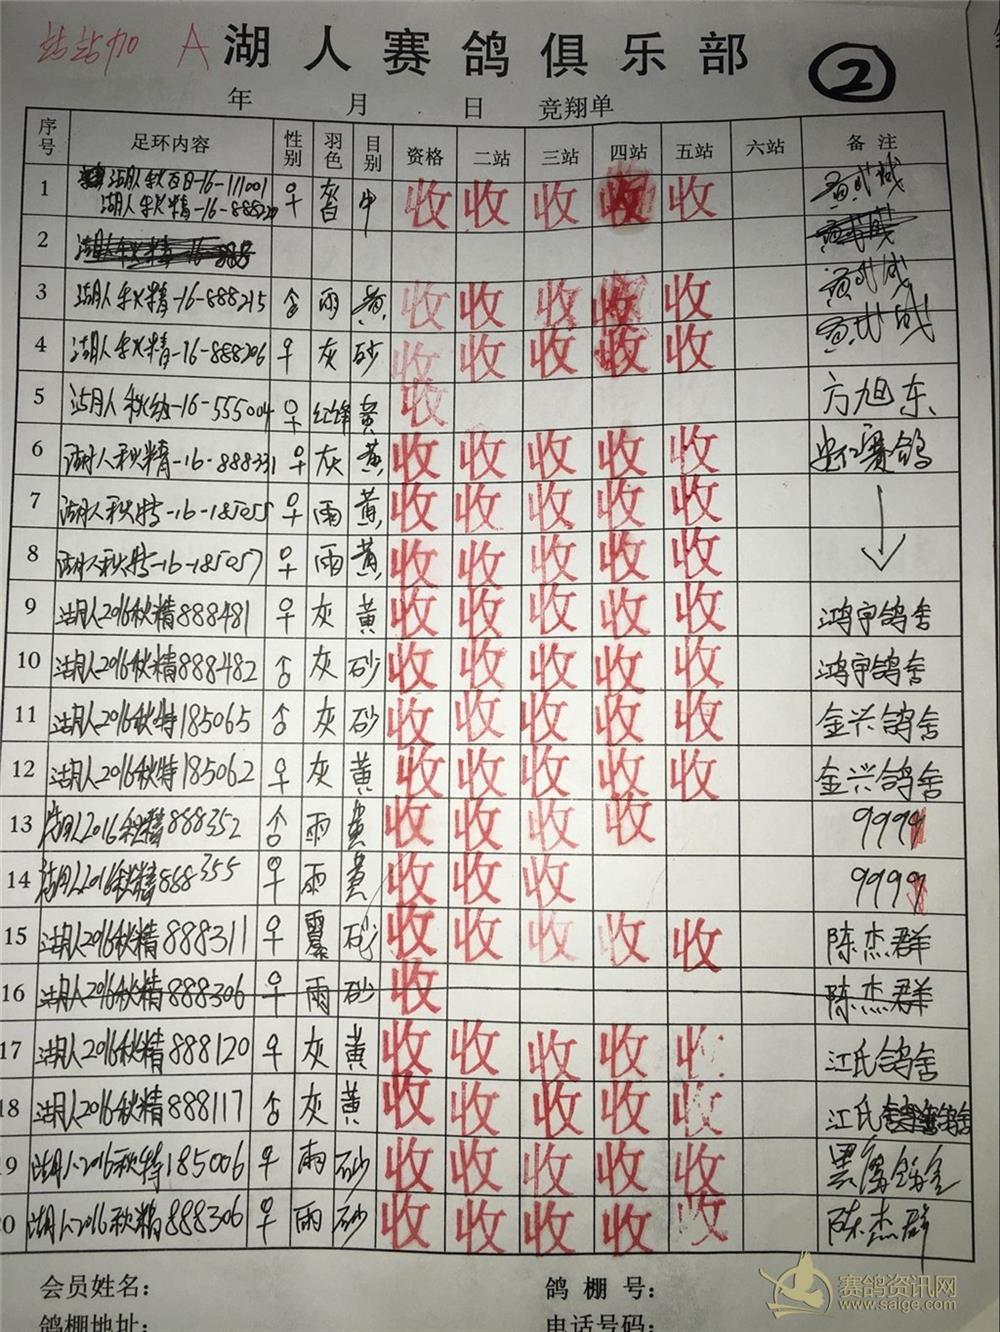 站站加 A 湖人赛鸽俱乐部 ②
年 月 日 竞翔单
序号 足环内容 性别 羽色 目别 资格 二站 三站 四站 五站 六站 备注
1 湖人秋百日-16-111001 ♀ 灰 收 收 收 收 收
湖人秋精-16-888220
2 湖人秋精-16-888
3 湖人秋精-16-888215 雨 黄 收 收 收 收 收
4 湖人秋精-16-888206 ♀ 灰 砂 收 收 收 收 收
5 湖人秋-16-555004 ♀ 红 黄 收 方旭东
6 湖人秋精-16-888331 ♀ 灰 黄 收 收 收 收 收 赛鸽
7 湖人秋特-16-185055 ♀ 雨 黄 收 收 收 收 收
8 湖人秋特-16-185057 ♀ 雨 黄 收 收 收 收 收
9 湖人2016秋精888481 ♀ 灰 黄 收 收 收 收 收 鸿宇鸽舍
10 湖人2016秋精888482 灰 砂 收 收 收 收 收 鸿宇鸽舍
11 湖人2016秋特185065 灰 砂 收 收 收 收 收 金兴鸽舍
12 湖人2016秋特185062 ♀ 灰 黄 收 收 收 收 收 金兴鸽舍
13 湖人2016秋精888352 雨 黄 收 收 收 收 9999
14 湖人2016秋精888355 ♀ 雨 黄 收 收 收 9999
15 湖人2016秋精888311 ♀ 砂 收 收 收 收 收 陈杰群
16 湖人2016秋精888306 ♀ 雨 砂 收 陈杰群
17 湖人2016秋精888120 ♀ 灰 黄 收 收 收 收 收 江氏鸽舍
18 湖人2016秋精888117 灰 黄 收 收 收 收 收 江氏
19 湖人2016秋特185006 ♀ 雨 砂 收 收 收 收 收
20 湖人2016秋精888306 ♀ 雨 砂 收 收 收 收 收 陈杰群
会员姓名： 鸽棚号：
鸽棚地址： 电话号码：
赛鸽资讯网
www.saige.com